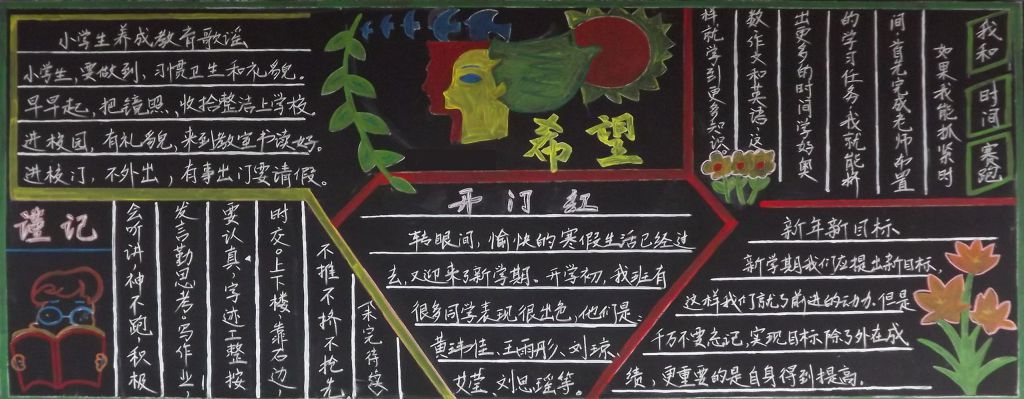 小学生养成教育歌谣
小学生，要做到，习惯卫生和礼貌。
早早起，把镜照，收拾整洁上学校。
进校园，有礼貌，来到教室书读好。
进校门，不外出，有事出门要请假。
希望
我和
时间
赛跑
如果我能抓紧时
间，首先完成老师布置
的学习任务，我就能挤
出更多的时间学好奥
数、作文和英语，这
样就学到更多知识
谨记
不推不挤不抢先
时交。上下楼，靠右边，
要认真，字迹工整按
发言勤思考，写作业，
会听讲神不跑，积极
（未完待续
开门红
转眼间，愉快的寒假生活已经过
去，又迎来了新学期。开学初，我班有
很多同学表现很出色，他们是：
黄玮佳、王雨彤、刘琼、
刘思瑶等。
新年新目标
新学期我们应提出新目标，
这样我们就了前进的动力。但是
千万不要忘记，实现目标除了外在成
绩，更重要的是自身得到提高。